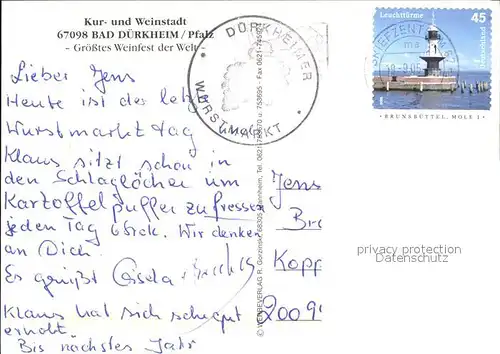 Kur- und Weinstadt
67098 BAD DÜRKHEIM / Pfalz
- Größtes Weinfest der Welt -
Lieber Jens
Heute ist der letzte
Wurstmarkt tag
Klaus sitzt schon in
den Schlaglöcher um
Kartoffelpuffer zu fressen
jeden Tag 6 Stck. Wir denken
an Dich.
Es grüßt Gisela
Klaus hat sich sehr gut
erholt
Bis nächstes Jahr
• DÜRKHEIMER •
WURSTMARKT
Leuchttürme
45
Deutschland
BRIEFZENTRUM
BRUNSBÜTTEL, MOLE 1
Jens
Br
Kopp
20099
privacy protection
Datenschutz